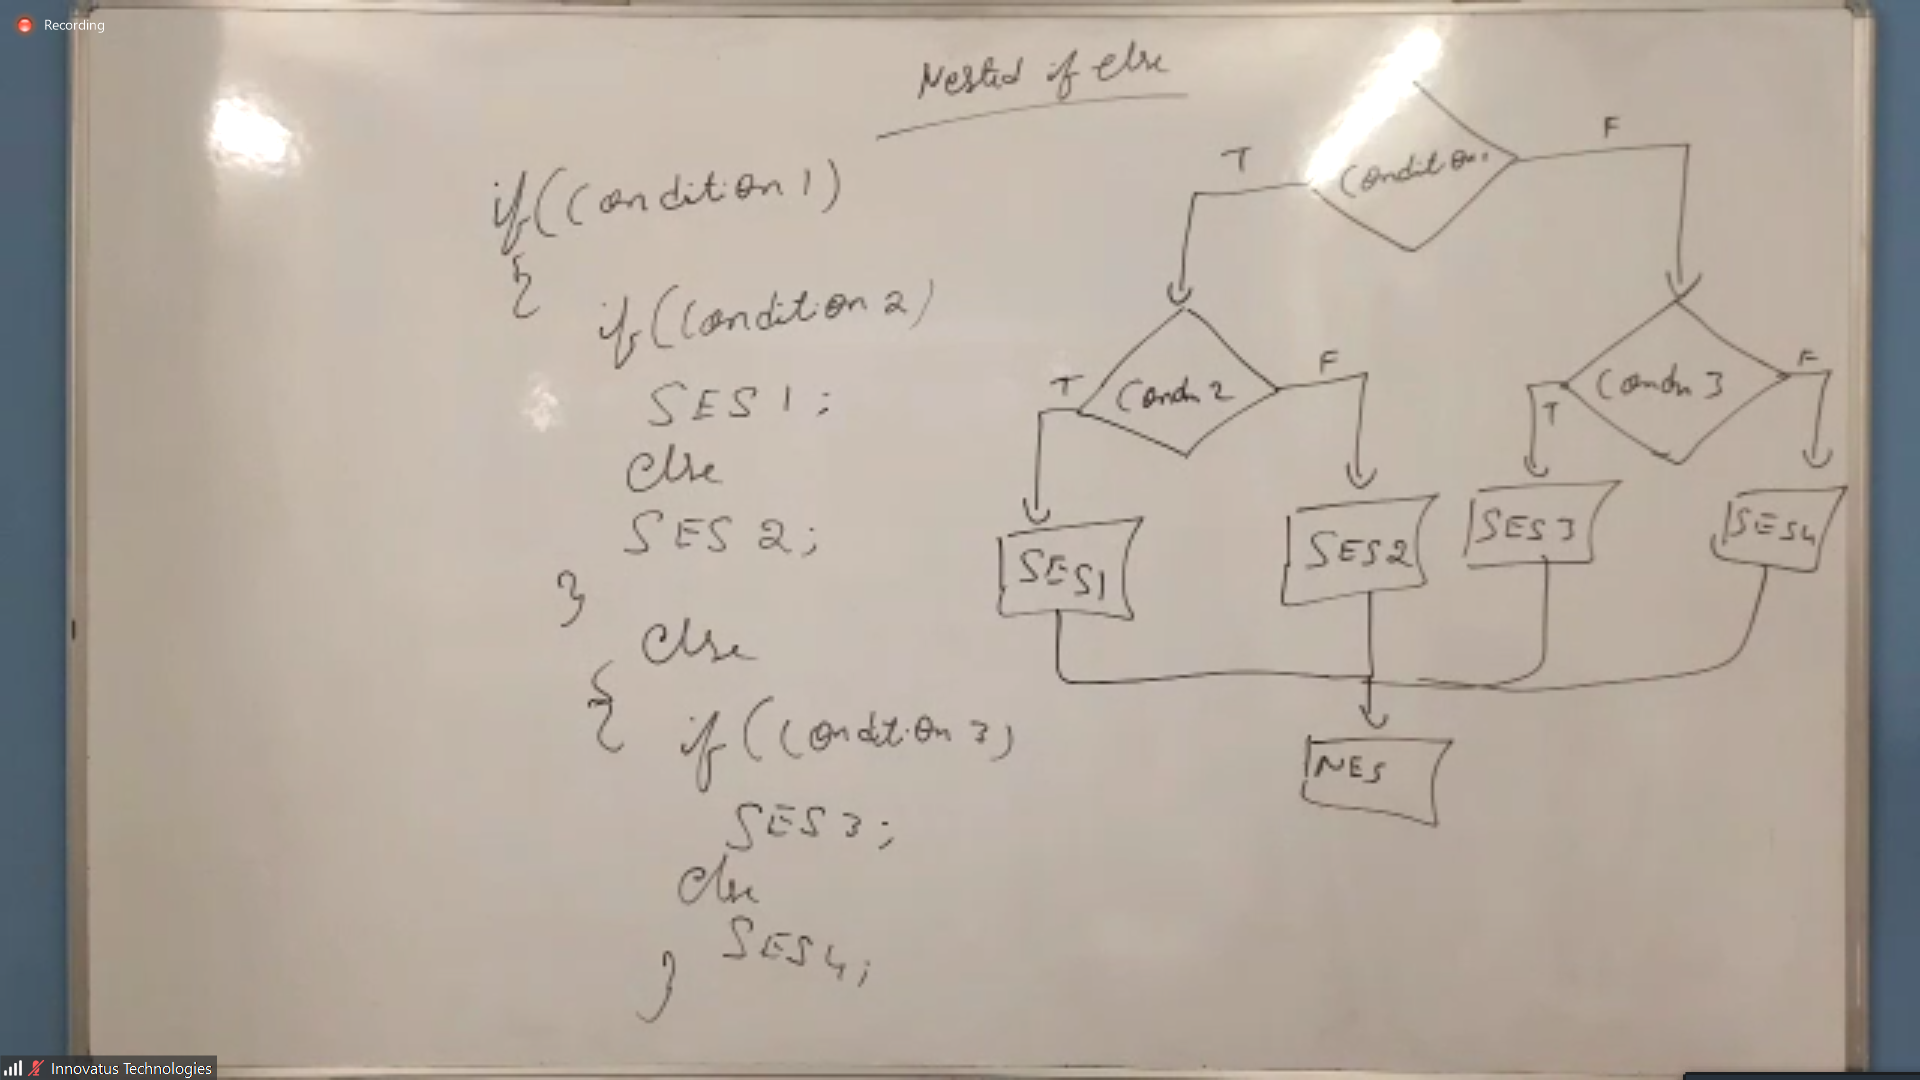 Recording
Nested if else
if(Condition 1)
{
if(Condition 2)
SES 1;
else
SES 2;
}
else
{
if(Condition 3)
SES 3;
else
SES 4;
}
Condition 1
T
F
Condn 2
T
F
Condn 3
T
F
SES1
SES2
SES3
SES4
NES
Innovatus Technologies